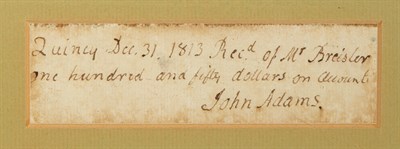 Quincy Dec. 31. 1813 Rec.d of Mr Breisler
one hundred and fifty dollars on account
John Adams.